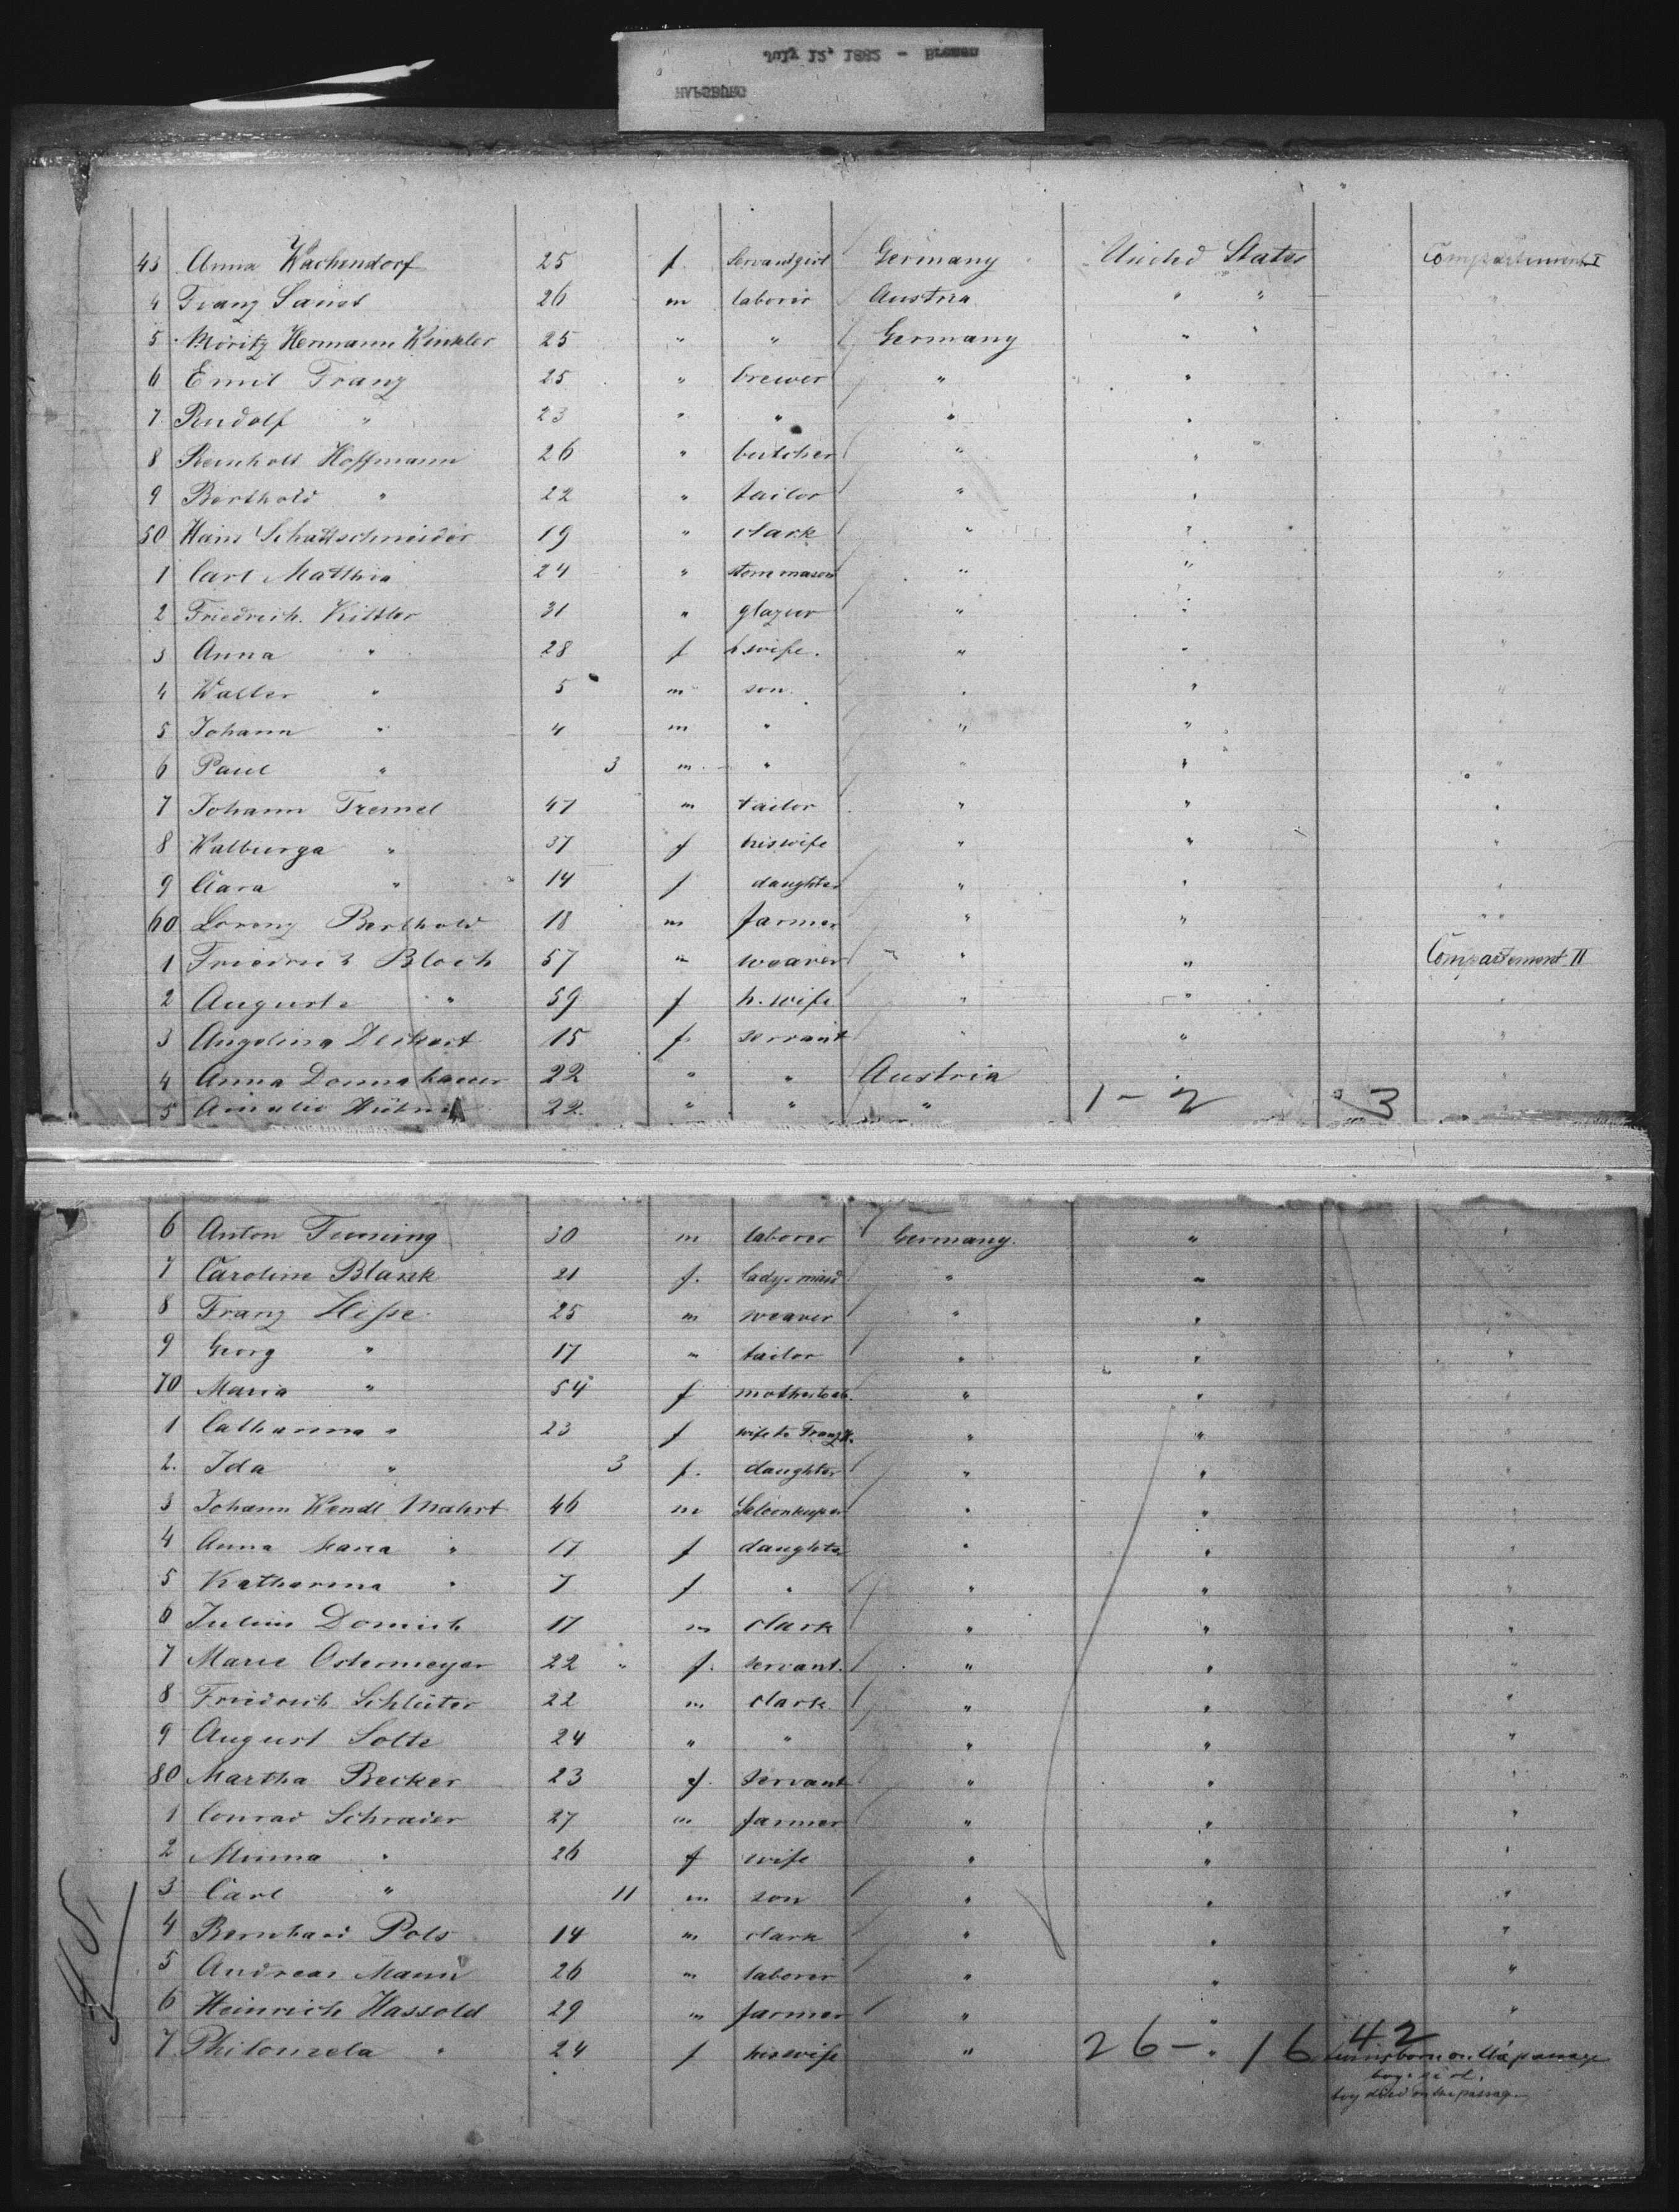 July 12, 1882 - Bremen
HAPSBURG
43 Anna Wachendorf 25 f. Servantgirl Germany United States Compartement I
4 Franz 26 m laborer Austria " "
5 Moritz Hermann Winkler 25 " " Germany " "
6 Emil Franz 25 " brewer " "
7 Rudolf " 23 " " " "
8 Reinholt Hoffmann 26 " butcher " "
9 Berthold " 22 " tailor " "
50 Hans Schattschneider 19 " clark " "
1 Carl Matthia 24 " " " "
2 Friedrich Kittler 31 " glazier " "
3 Anna " 28 f h.wife. " "
4 Walter " 5 m son. " "
5 Johann " 4 m " " "
6 Paul " 3 m " " " "
7 Johann Tremel 47 m tailor " " "
8 Walburga " 37 f hiswife " " "
9 Clara " 14 f daughter " " "
60 Lorenz Berthold 18 m farmer " " "
1 Friedrich Bloch 57 m weaver " " Compartement II
2 Auguste " 59 f h.wife " " "
3 Angelina 15 f servant " " "
4 Anna Donnahauer 22 " " Austria " "
5 Amalie 22 " " " 1 - 2 3
6 Anton 30 m laborer Germany. " "
7 Caroline Blank 21 f. ladys maid " " "
8 Franz Hisse 25 m weaver " " "
9 Georg " 17 " tailor " " "
70 Maria " 54 f " " "
1 Catharina " 23 f wife to Franz H. " " "
2. Ida " 3 f. daughter " " "
3 Johann Wendl Mahrt 46 m Saloonkeeper " " "
4 Anna Maria " 17 f daughter " " "
5 Katharina " 7 f " " " "
6 Julius Domich 17 m clark " " "
7 Marie Ostermeyer 22 f. servant. " " "
8 Friedrich Schlüter 22 m clark. " " "
9 August Solte 24 " " " " "
80 Martha Becker 23 f. servant " " "
1 Conrad Schrader 27 m farmer " " "
2 Minna " 26 f wife " " "
3 Carl " 11 m son " " "
4 Bernhard Pols 14 m clark " " "
5 Andreas Mann 26 m laborer " " "
6 Heinrich Hassold 29 m farmer " " "
7. " 24 f hiswife " 26 - 16 42
born on the passage
boy
boy died on the passage